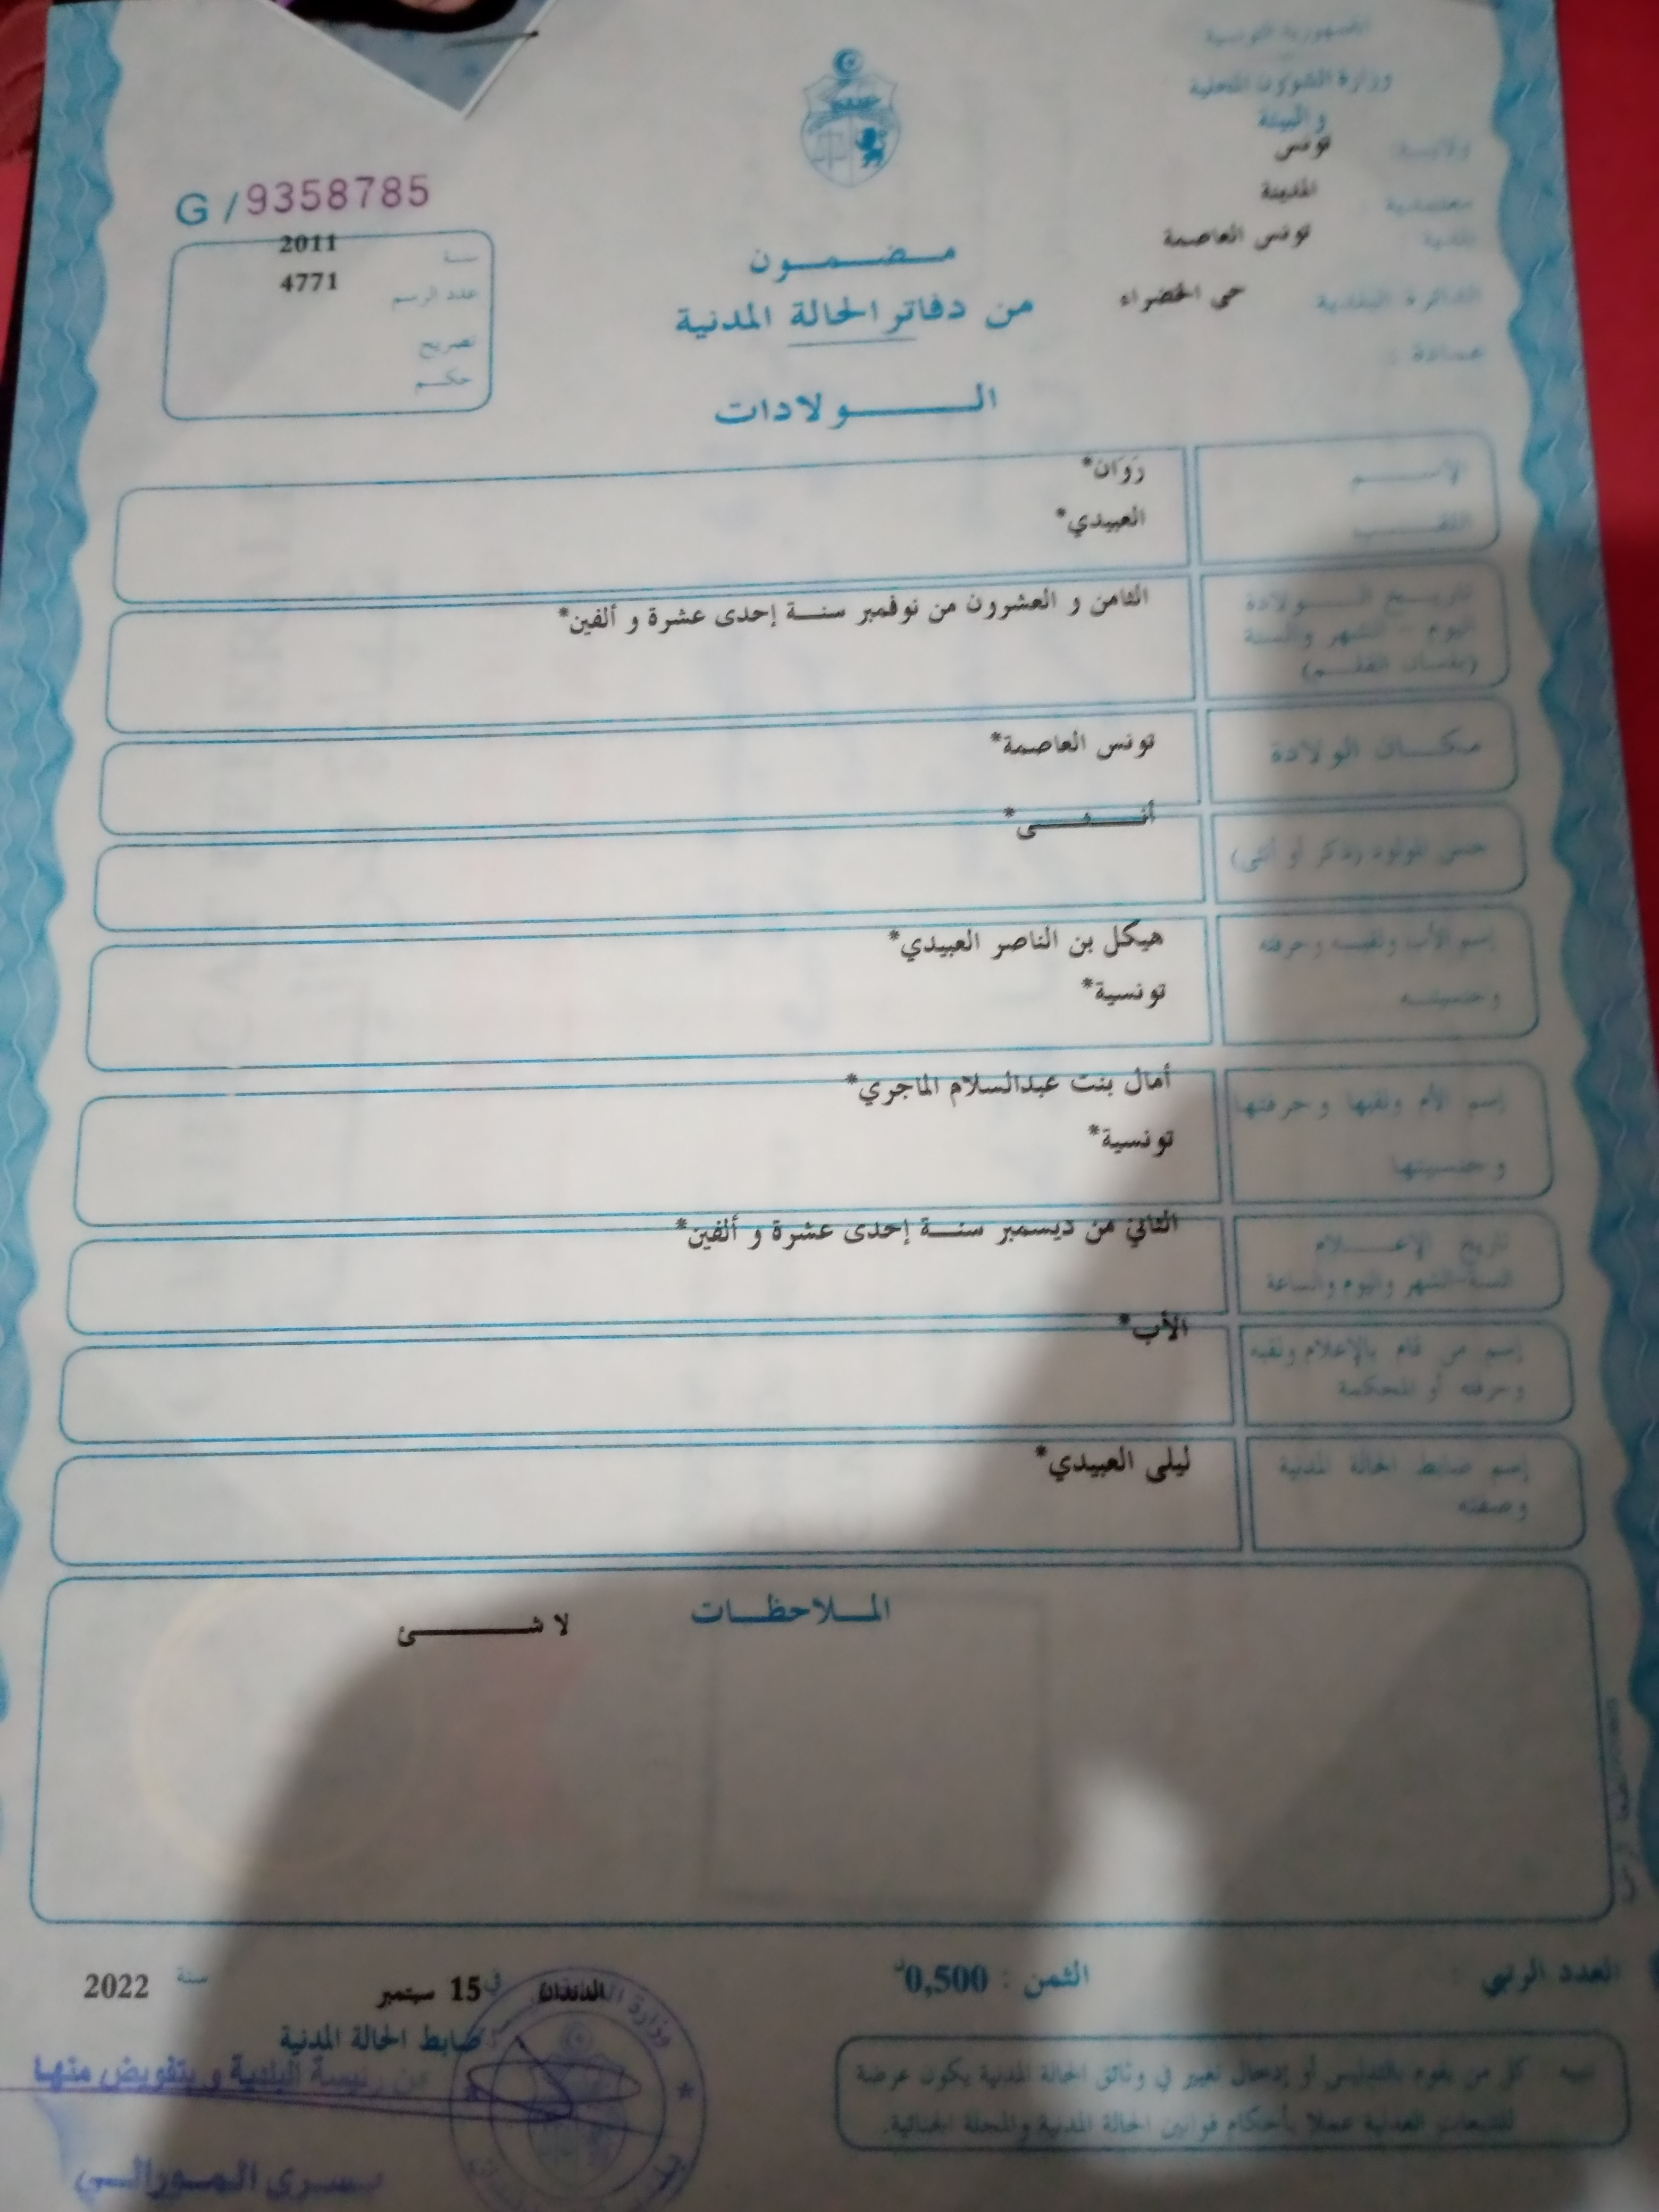 الجمهورية التونسية
وزارة الشؤون المحلية
والبيئة
ولايـــة: تونس
معتمدية المدينة
بلدية تونس العاصمة
الدائرة البلدية حي الخضراء
عمادة :
G / 9358785
سنة 2011
عدد الرسم 4771
تصريح
حكم
مضمون
من دفاتر الحالة المدنية
الولادات
الإسم رَوَان*
اللقب العبيدي*
تاريخ الولادة الثامن و العشرون من نوفمبر سنة إحدى عشرة و ألفين*
اليوم - الشهر والسنة
(بلسان القلم)
مكان الولادة تونس العاصمة*
جنس المولود (ذكر أو أنثى) أنثى*
إسم الأب ولقبه وحرفته هيكل بن الناصر العبيدي*
وجنسيته تونسية*
إسم الأم ولقبها وحرفتها أمال بنت عبدالسلام الماجري*
وجنسيتها تونسية*
تاريخ الإعلام الثاني من ديسمبر سنة إحدى عشرة و ألفين*
السنة-الشهر واليوم والساعة
إسم من قام بالإعلام ولقبه الأب*
وحرفته أو المحكمة
إسم ضابط الحالة المدنية ليلى العبيدي*
وصفته
الملاحظات
لا شئ
العدد الرتبي :
الثمن : 0,500د
الدندان في 15 سبتمبر سنة 2022
ضابط الحالة المدنية
عن رئيسة البلدية و بتفويض منها
تنبيه كل من يقوم بالتدليس أو إدخال تغيير في وثائق الحالة المدنية يكون عرضة
للتتبعات العدلية عملا بأحكام قوانين الحالة المدنية والمجلة الجنائية.